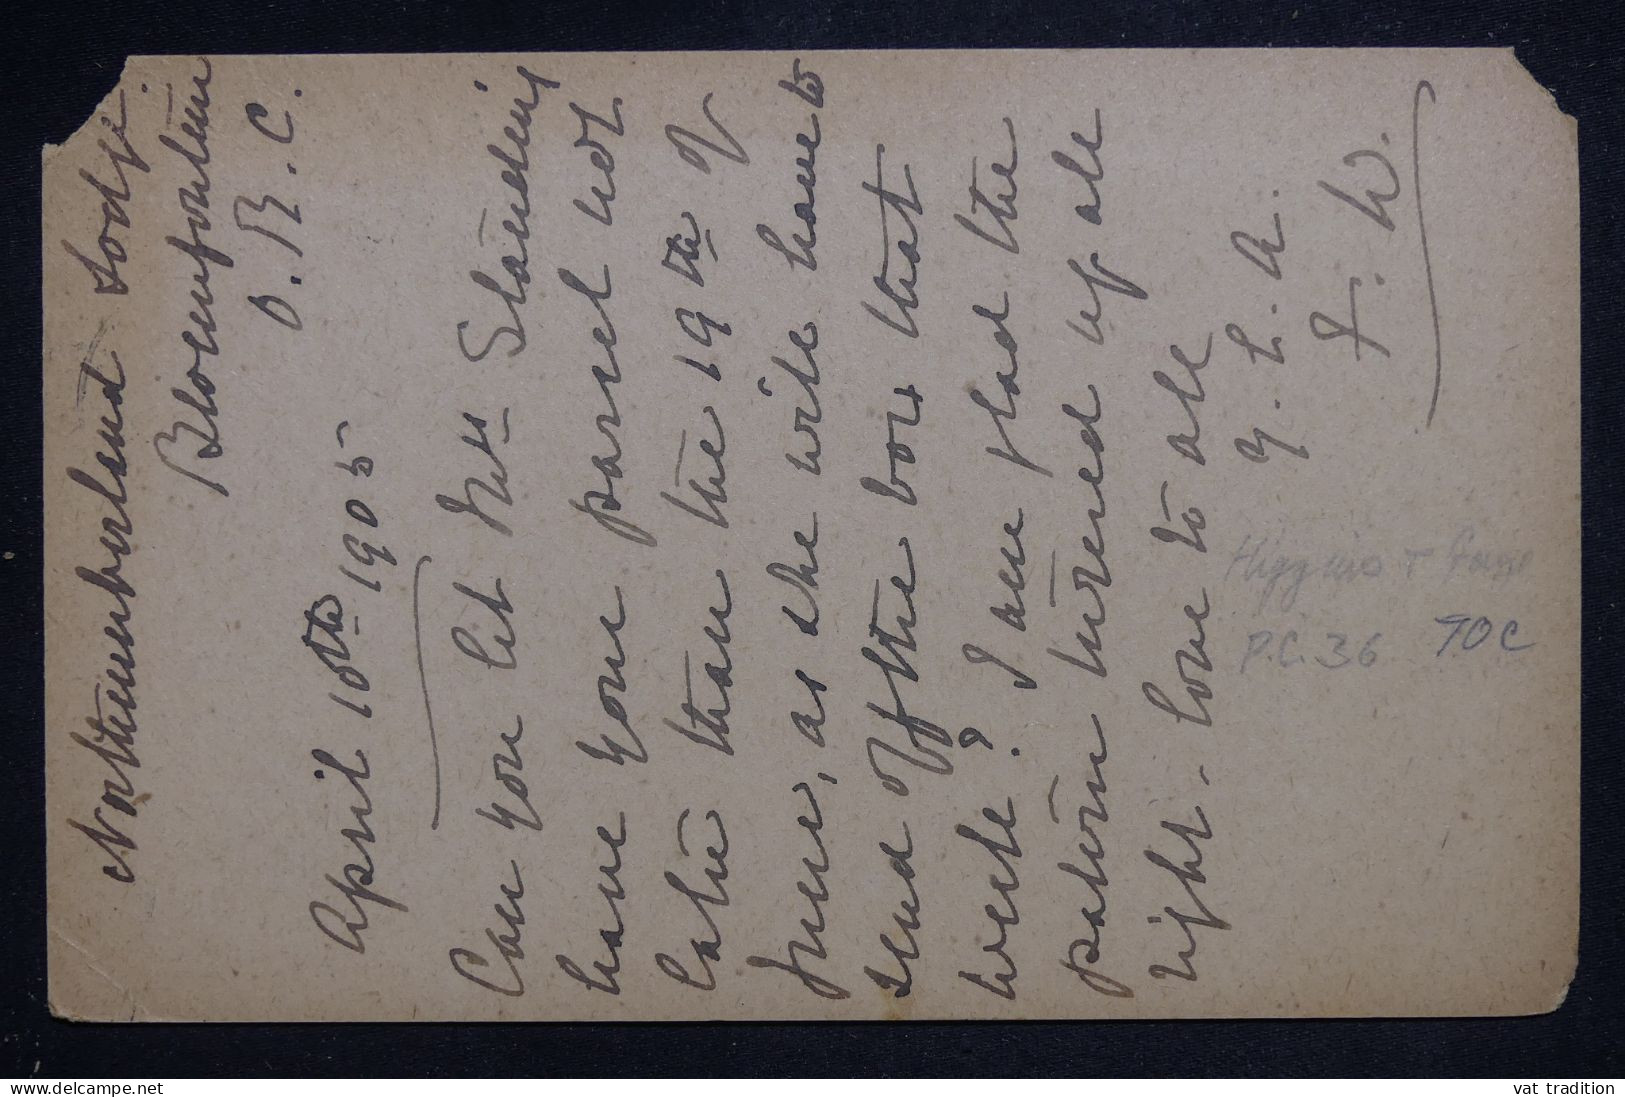 Northumberland Lodge.
Bloemfontein
O. R. C.
April 10th 1905
Can you let Mrs Standing
have your parcel not
later than the 19th of
June, as she will have to
send off the box that
week? I am glad the
pattern turned up all
right - Love to all
Y. L. A.
F. W.
Higgins + Gage
P.C. 36 TOC
www.delcampe.net
vat tradition